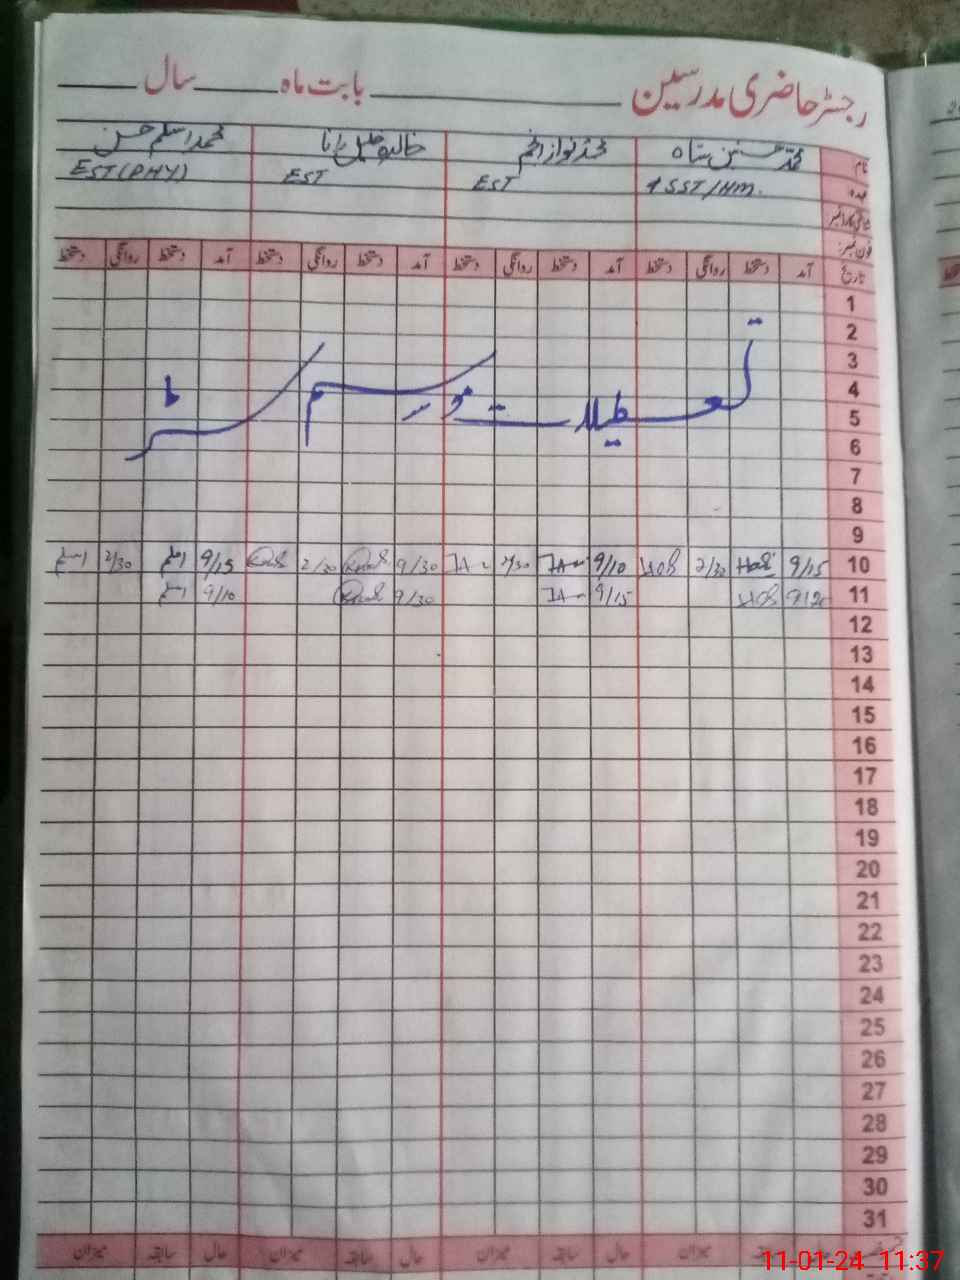 رجسٹر حاضری مدرسین ______ بابت ماہ ______ سال ______
نام محمد حسنین شاہ محمد نواز انجم خالد خلیل رانا محمد اسلم حسن
عہدہ SST/HM. EST EST EST(PHY)
شناختی کارڈ نمبر
فون نمبر:
تاریخ آمد دستخط روانگی دستخط آمد دستخط روانگی دستخط آمد دستخط روانگی دستخط آمد دستخط روانگی دستخط
1
2
3
4
تعطیلات موسم سرما
5
6
7
8
9
10 9/15 2/30 9/10 2/30 9/30 2/30 9/15 اسلم 2/30 اسلم
11 9/15 9/30 9/10 اسلم
12
13
14
15
16
17
18
19
20
21
22
23
24
25
26
27
28
29
30
31
حال سابقہ میزان حال سابقہ میزان حال سابقہ میزان حال سابقہ میزان
11-01-24 11:37